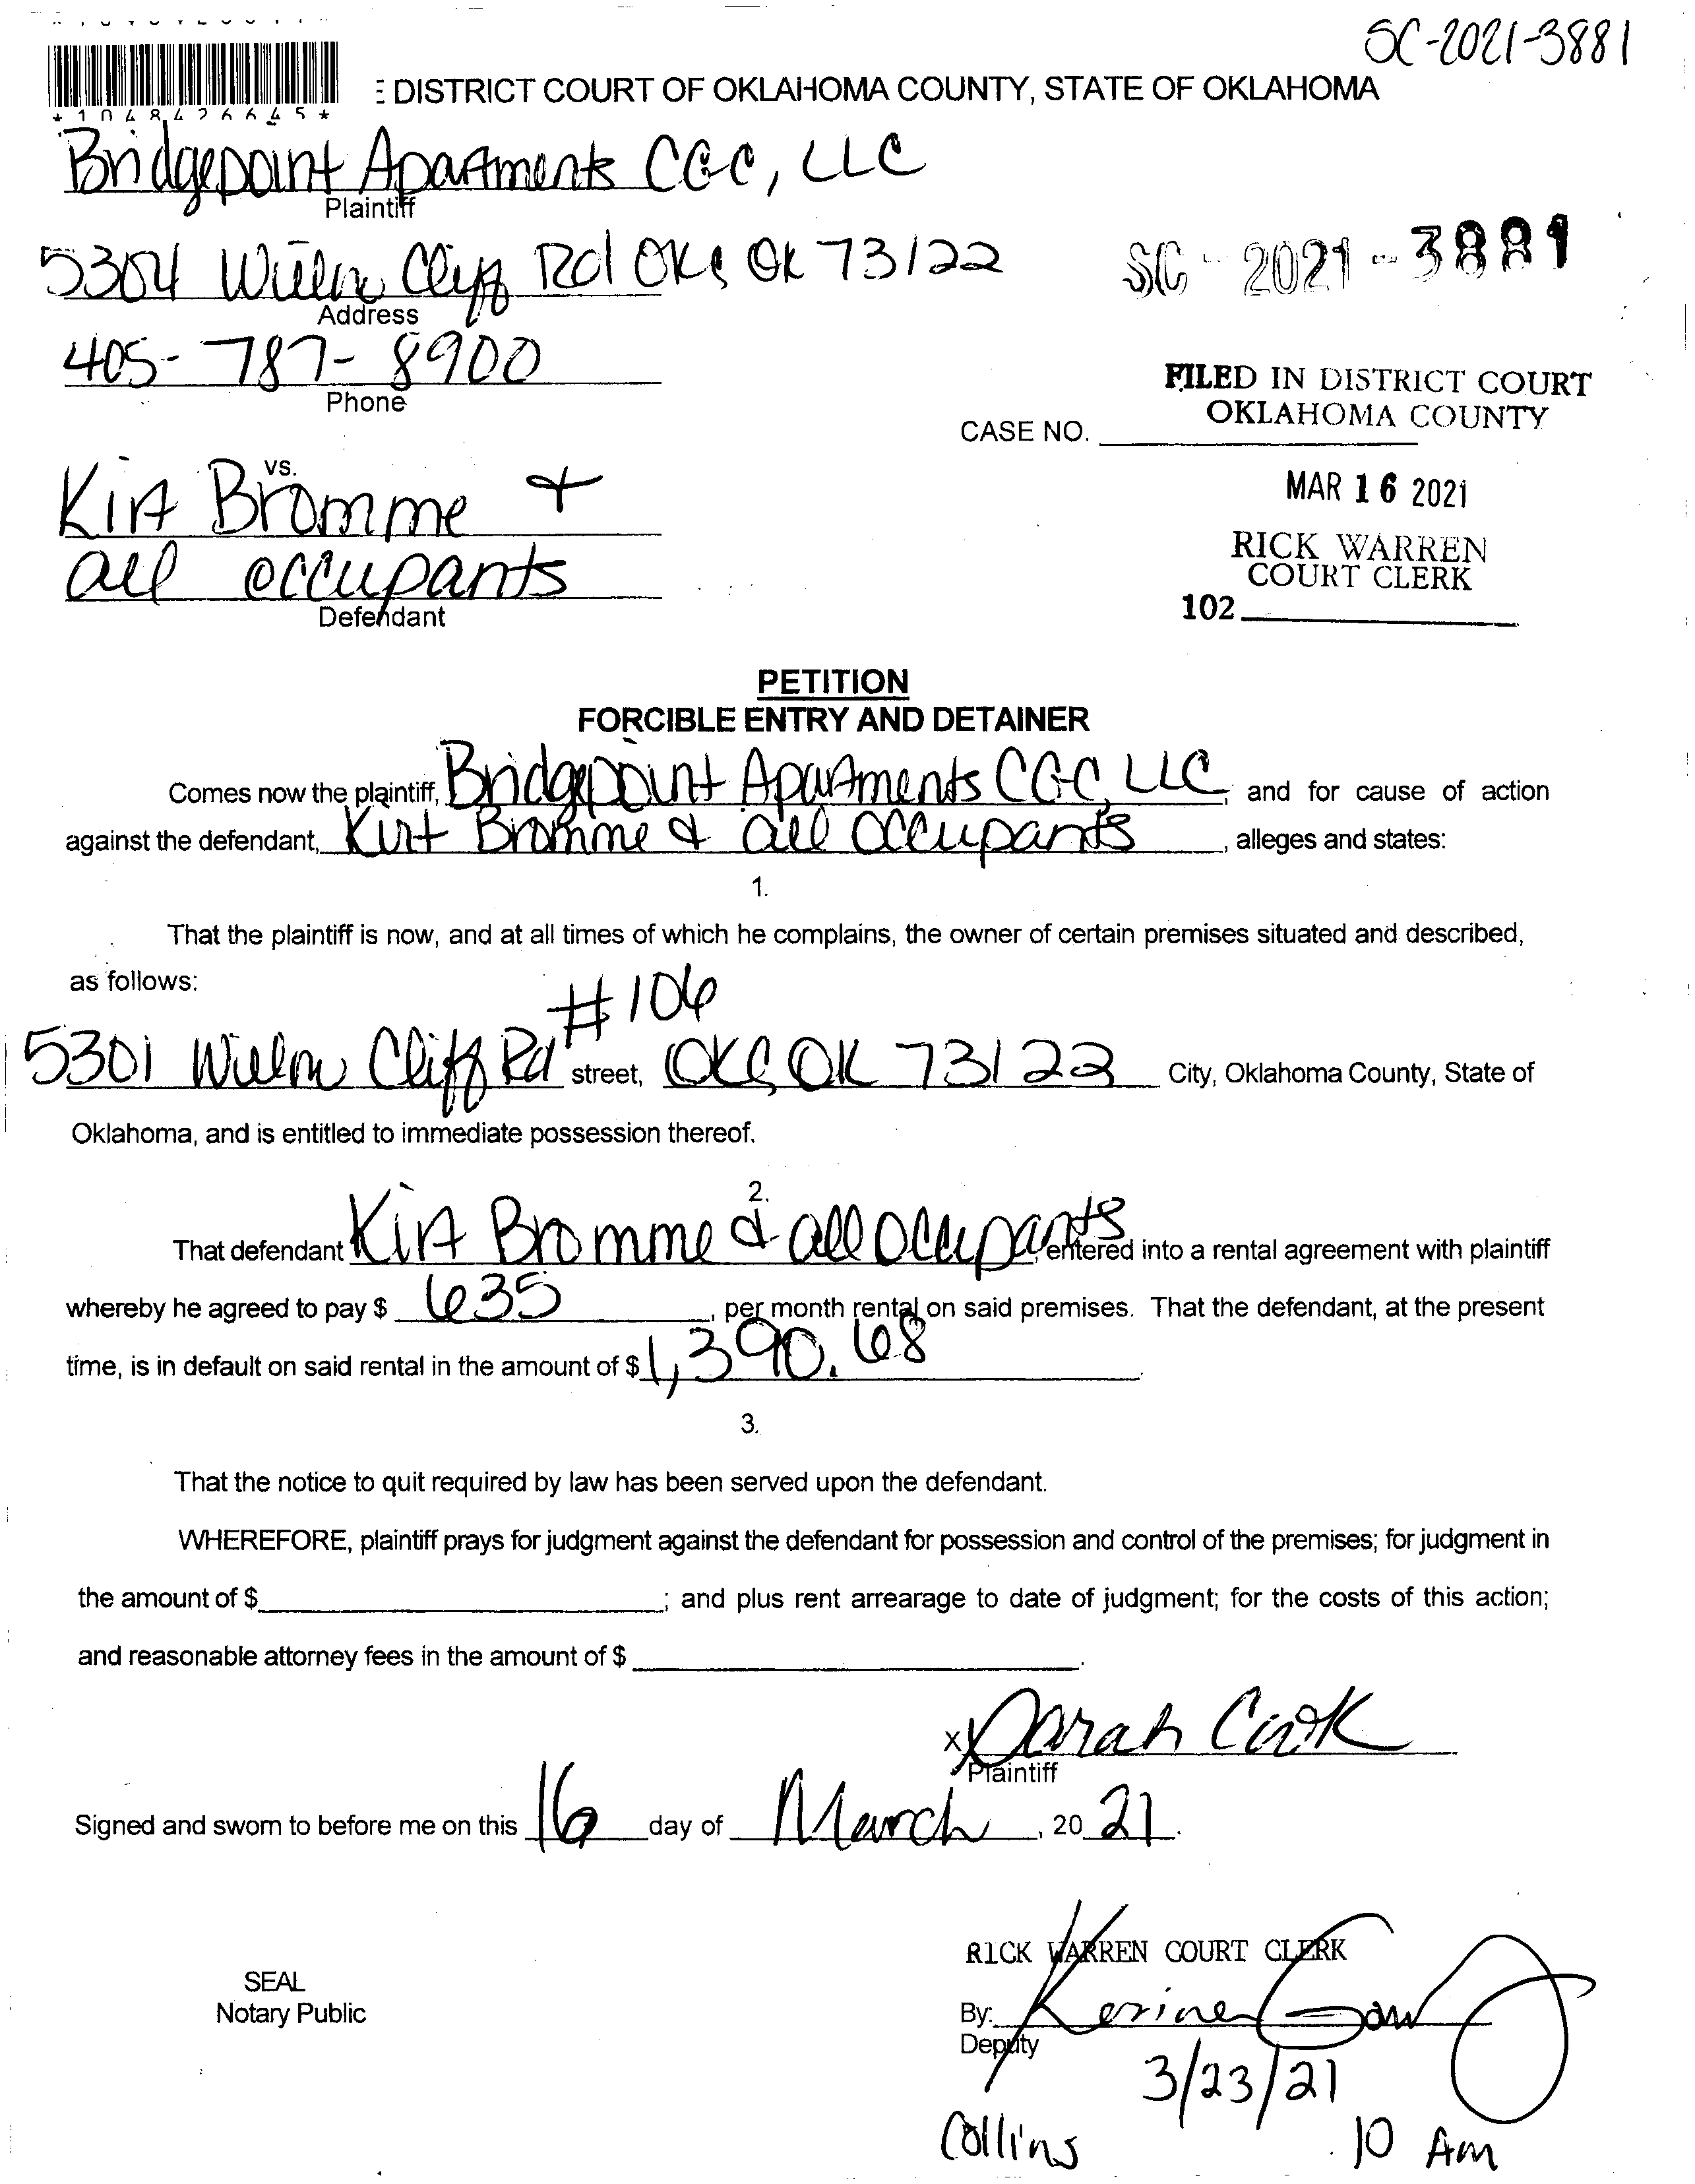 SC-2021-3881
*1048426645*
E DISTRICT COURT OF OKLAHOMA COUNTY, STATE OF OKLAHOMA
Bridgepoint Apartments CGC, LLC
Plaintiff
5304 Willow Cliff Rd OKC OK 73122
SC - 2021 - 3881
Address
405-787-8900
Phone
FILED IN DISTRICT COURT
OKLAHOMA COUNTY
CASE NO.
MAR 16 2021
RICK WARREN
COURT CLERK
102
vs.
Kirt Bromme &
all occupants
Defendant
PETITION
FORCIBLE ENTRY AND DETAINER
Comes now the plaintiff, Bridgepoint Apartments CGC, LLC, and for cause of action
against the defendant, Kirt Bromme & all occupants, alleges and states:
1.
That the plaintiff is now, and at all times of which he complains, the owner of certain premises situated and described,
as follows:
#106
5301 Willow Cliff Rd street, OKC, OK 73122 City, Oklahoma County, State of
Oklahoma, and is entitled to immediate possession thereof.
2.
That defendant Kirt Bromme & all occupants, entered into a rental agreement with plaintiff
whereby he agreed to pay $ 635, per month rental on said premises. That the defendant, at the present
time, is in default on said rental in the amount of $ 1,390.68.
3.
That the notice to quit required by law has been served upon the defendant.
WHEREFORE, plaintiff prays for judgment against the defendant for possession and control of the premises; for judgment in
the amount of $; and plus rent arrearage to date of judgment; for the costs of this action;
and reasonable attorney fees in the amount of $.
x Sarah Cook
Plaintiff
Signed and sworn to before me on this 16 day of March, 20 21.
RICK WARREN COURT CLERK
SEAL
Notary Public
By:
Deputy
3/23/21
Collins 10 Am